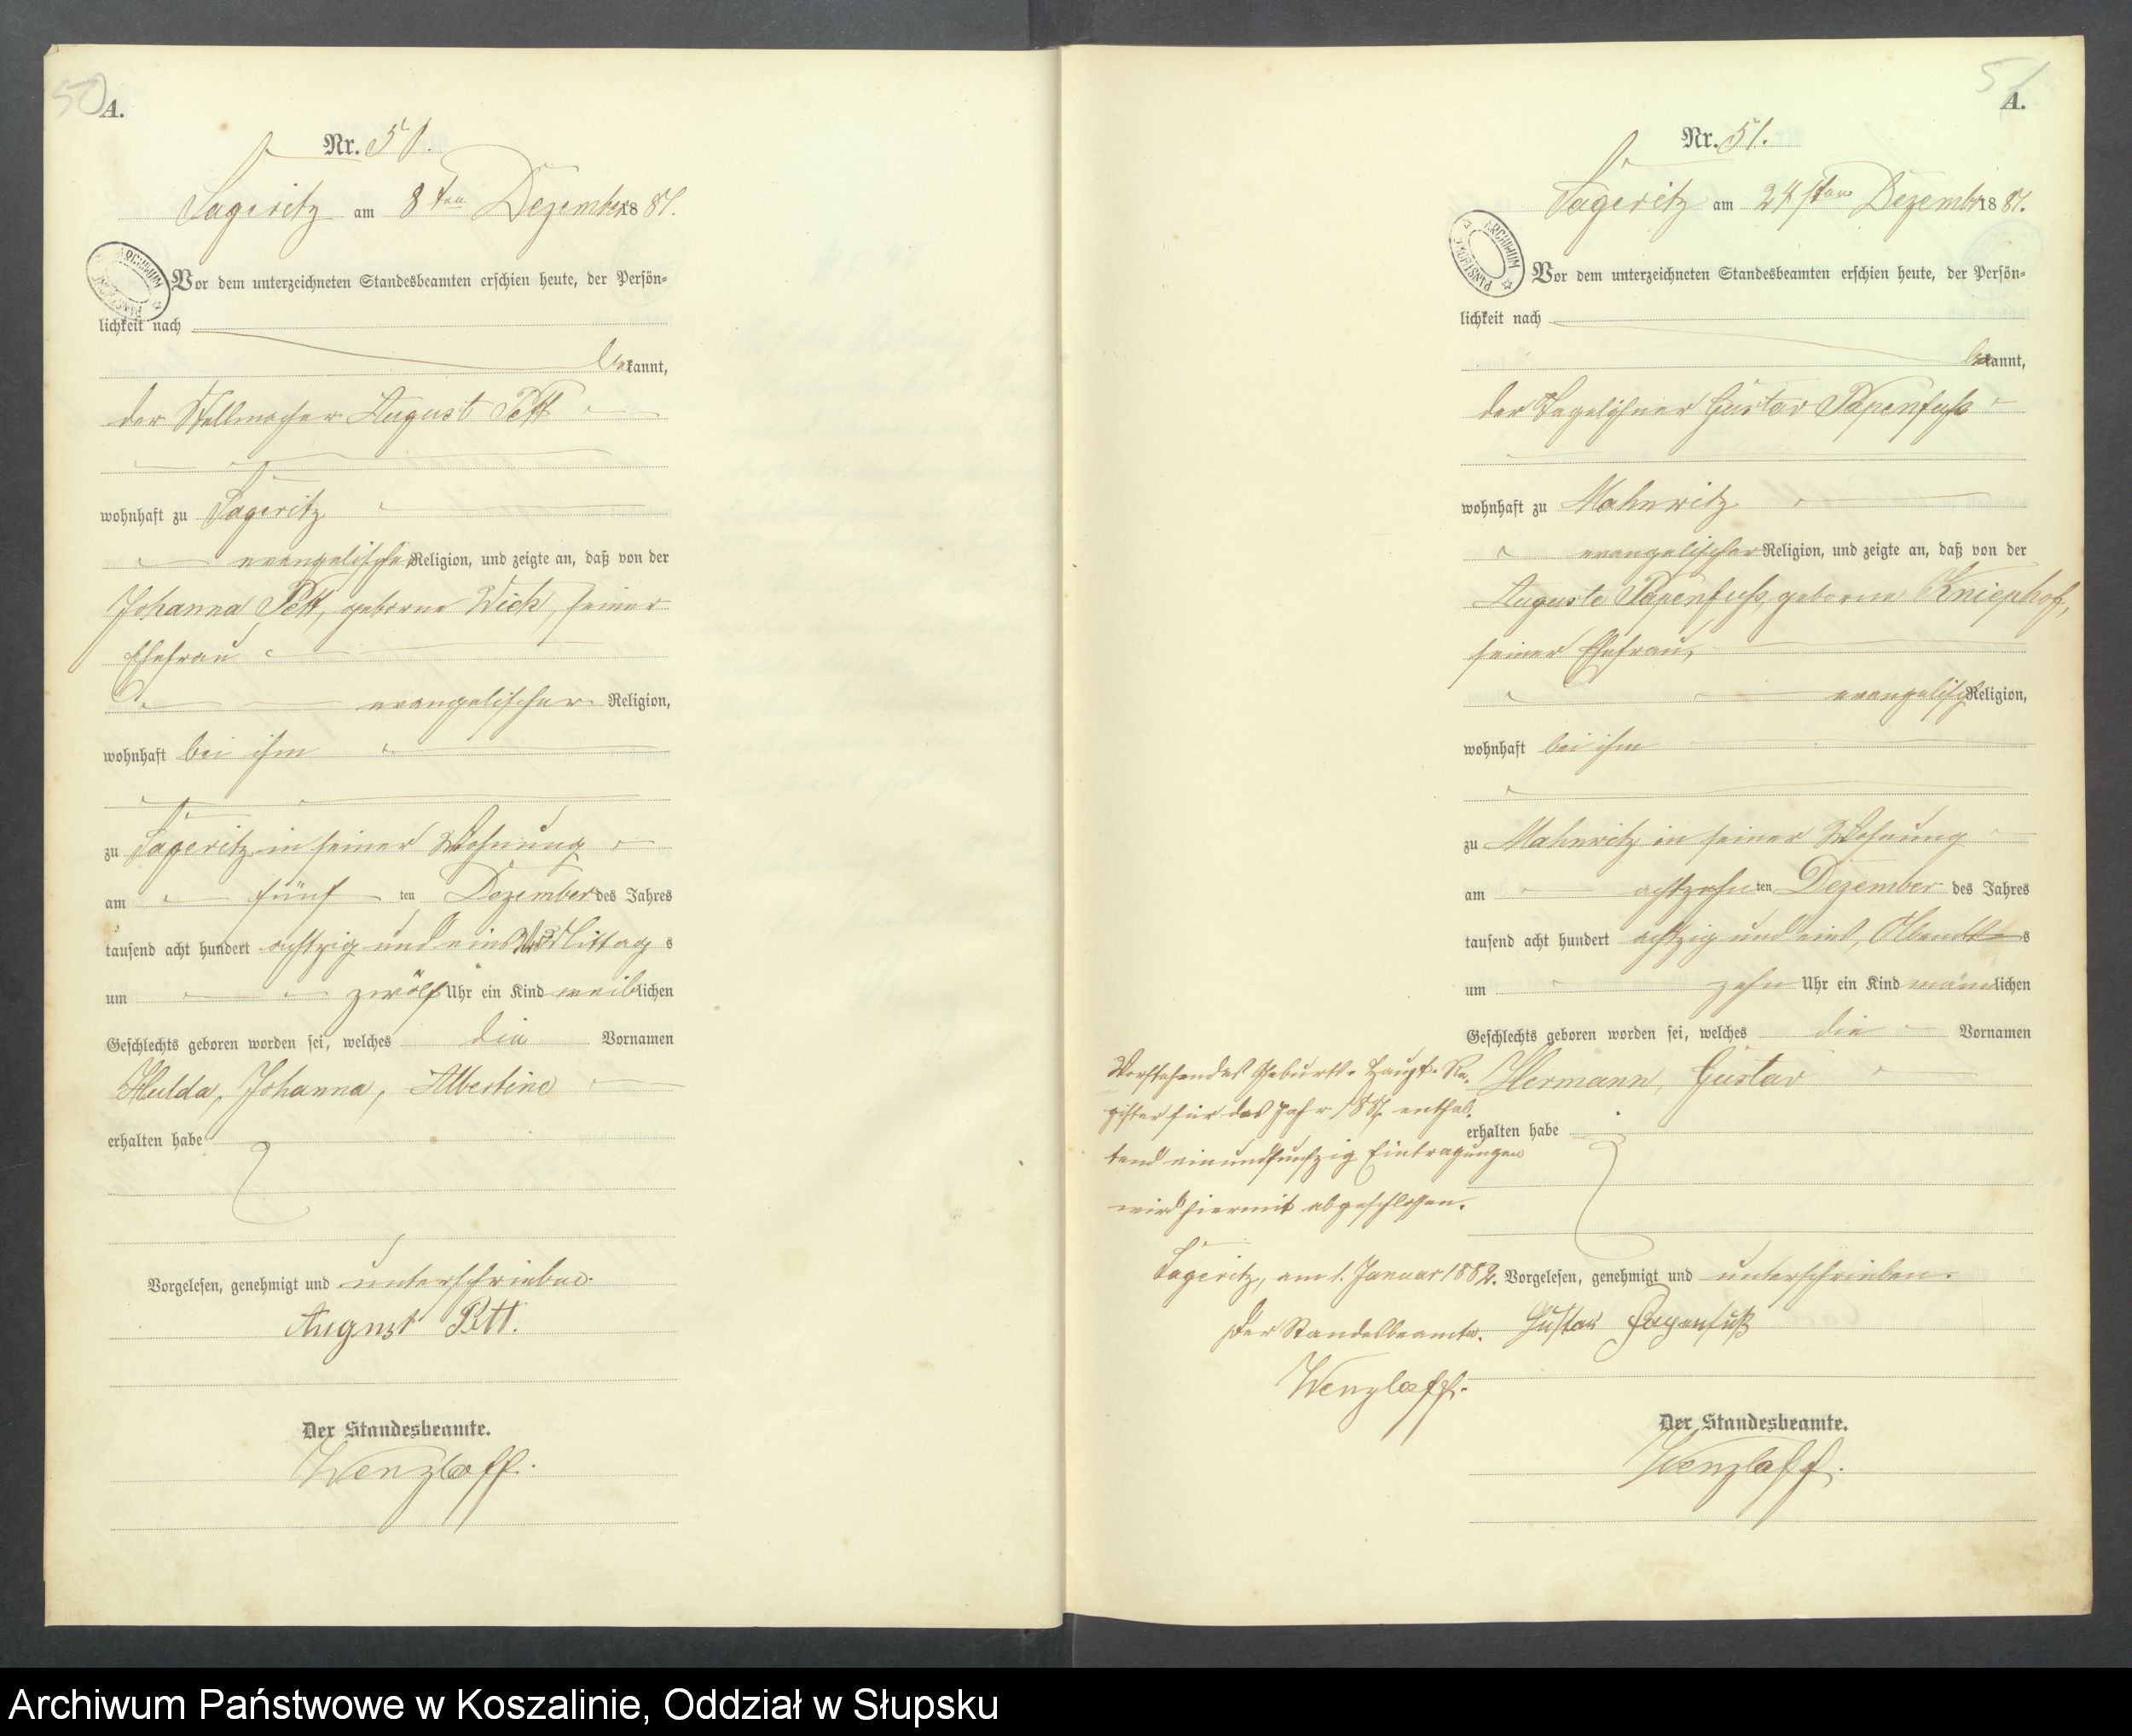 50
A.
Nr. 51.
Sageritz am 8ten Dezember 1881.
ARCHIWUM PAŃSTWOWE
Vor dem unterzeichneten Standesbeamten erschien heute, der Persön-
lichkeit nach
bekannt,
der Stellmacher August Pett
wohnhaft zu Sageritz
evangelischer Religion, und zeigte an, daß von der
Johanna Pett, geborne Dick, seiner
Ehefrau
evangelischer Religion,
wohnhaft bei ihm
zu Sageritz in seiner Wohnung
am fünf ten Dezember des Jahres
tausend acht hundert achtzig und eins Mittags
um zwölf Uhr ein Kind weiblichen
Geschlechts geboren worden sei, welches die Vornamen
Hulda, Johanna, Albertine
erhalten habe
Vorgelesen, genehmigt und unterschrieben.
August Pett.
Der Standesbeamte.
Wenzlaff.
51
A.
Nr. 51.
Sageritz am 24sten Dezember 1881.
ARCHIWUM PAŃSTWOWE
Vor dem unterzeichneten Standesbeamten erschien heute, der Persön-
lichkeit nach
bekannt,
der Tagelöhner Gustav Papenfuß
wohnhaft zu Mahnwitz
evangelischer Religion, und zeigte an, daß von der
Auguste Papenfuß, geborne Kniephof,
seiner Ehefrau,
evangelisch Religion,
wohnhaft bei ihm
zu Mahnwitz in seiner Wohnung
am achtzehn ten Dezember des Jahres
tausend acht hundert achtzig und eins, Abends
um zehn Uhr ein Kind männlichen
Geschlechts geboren worden sei, welches die Vornamen
Hermann, Gustav
erhalten habe
Vorstehendes Geburts-Haupt-Re-
gister für das Jahr 1881 enthal-
tend einundfunfzig Eintragungen
wird hiermit abgeschlossen.
Sageritz, am 1. Januar 1882.
Der Standesbeamte.
Wenzlaff.
Vorgelesen, genehmigt und unterschrieben.
Gustav Papenfuß
Der Standesbeamte.
Wenzlaff.
Archiwum Państwowe w Koszalinie, Oddział w Słupsku